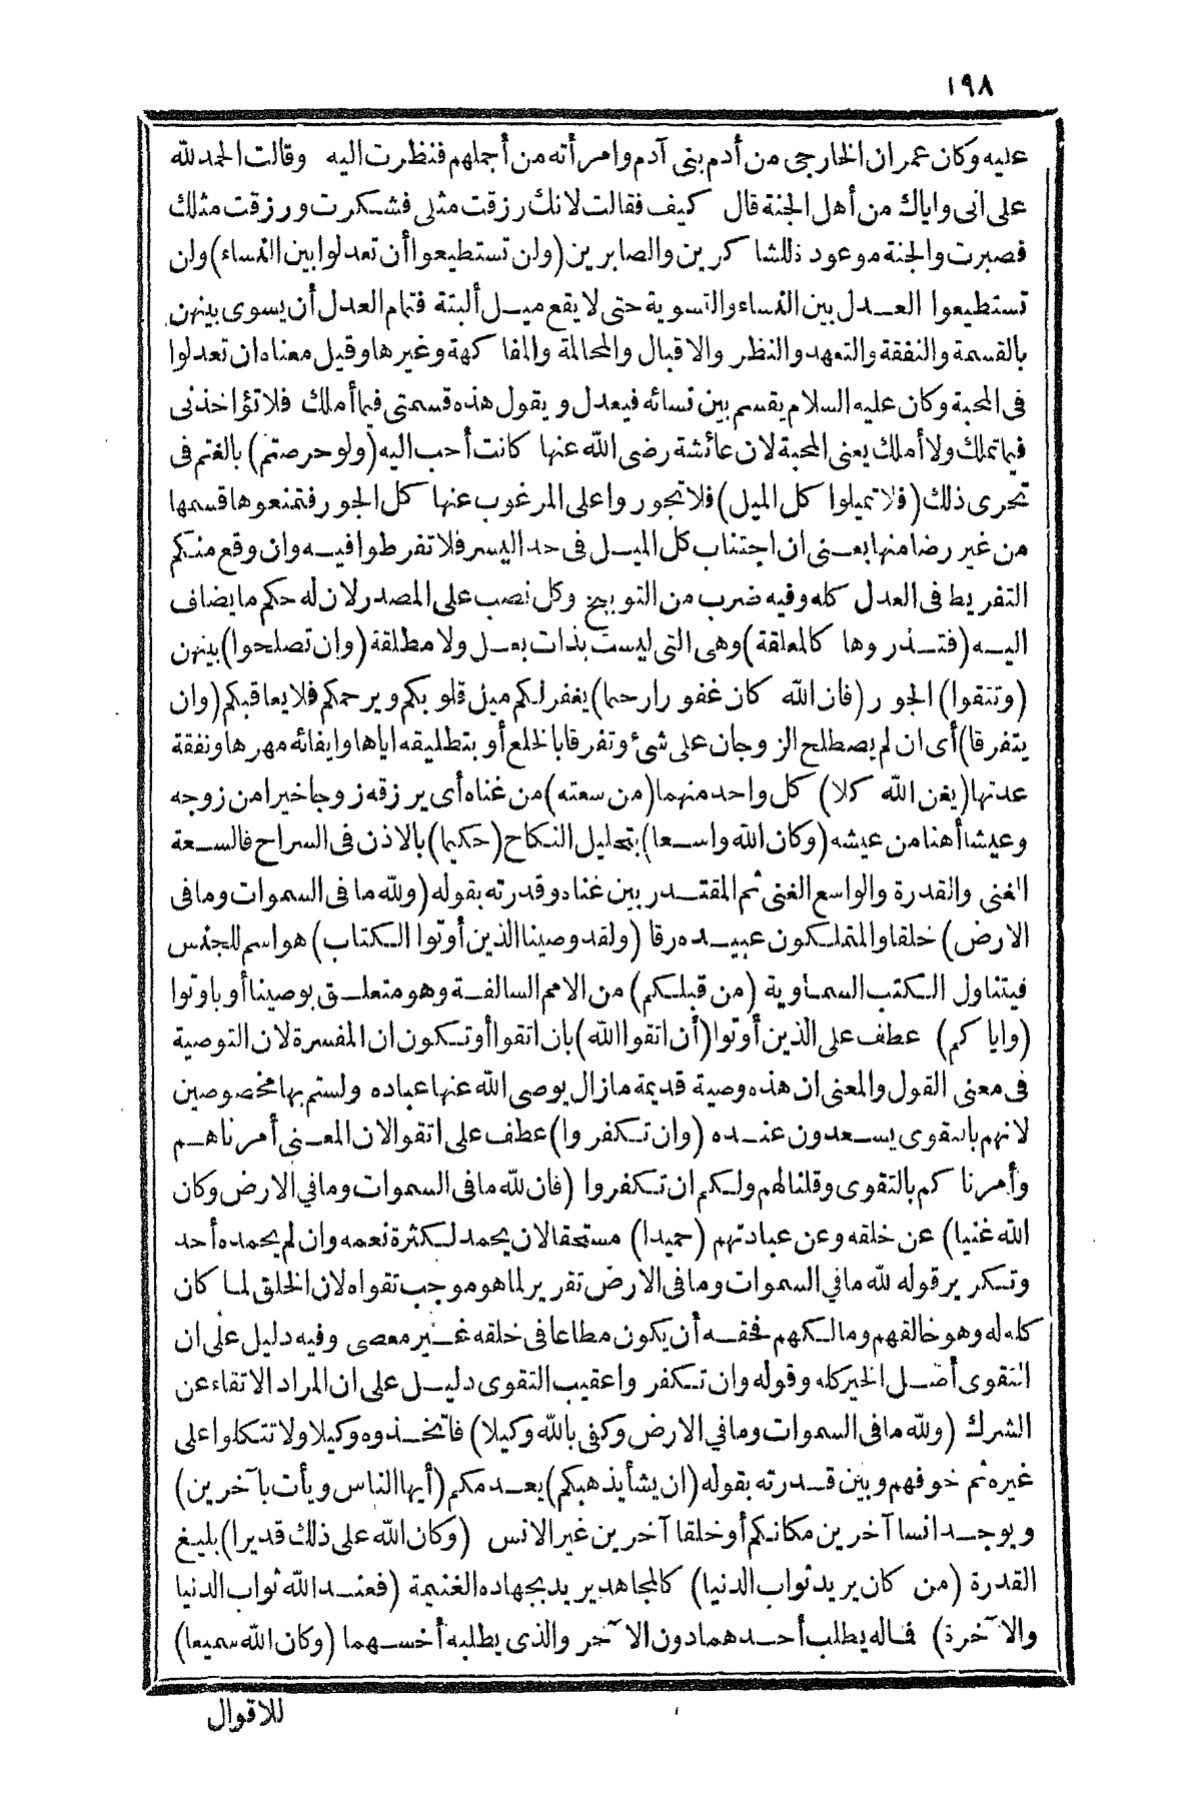 ١٩٨
عليه وكان عمران الخارجى من أدم بنى آدم وامرأته من أجملهم فنظرت اليه وقالت الحمد لله
على انى واياك من أهل الجنة قال كيف فقالت لانك رزقت مثلى فشكرت ورزقت مثلك
فصبرت والجنة موعودة للشاكرين والصابرين (ولن تستطيعوا أن تعدلوا بين النساء) ولن
تستطيعوا العدل بين النساء والتسوية حتى لا يقع ميل ألبتة فتمام العدل أن يسوى بينهن
بالقسمة والنفقة والتعهد والنظر والاقبال والمحالمة والمفاكهة وغيرها وقيل معناه ان تعدلوا
فى المحبة وكان عليه السلام يقسم بين نسائه فيعدل ويقول هذه قسمتى فيما أملك فلا تؤاخذنى
فيما تملك ولا أملك يعنى المحبة لان عائشة رضى الله عنها كانت أحب اليه (ولو حرصتم) بالغتم فى
تحرى ذلك (فلا تميلوا كل الميل) فلا تجوروا على المرغوب عنها كل الجور فتمنعوها قسمها
من غير رضا منها يعنى ان اجتناب كل الميل فى حد اليسر فلا تفرطوا فيه وان وقع منكم
التفريط فى العدل كله وفيه ضرب من التوبيخ وكل نصب على المصدر لان له حكم ما يضاف
اليه (فتذروها كالمعلقة) وهى التى ليست بذات بعل ولا مطلقة (وان تصلحوا) بينهن
(وتتقوا) الجور (فان الله كان غفورا رحيما) يغفر لكم ميل قلوبكم ويرحمكم فلا يعاقبكم (وان
يتفرقا) أى ان لم يصطلح الزوجان على شئ وتفرقا بالخلع أو بتطليقه اياها وايفائه مهرها ونفقة
عدتها (يغن الله كلا) كل واحد منهما (من سعته) من غناه أى يرزقه زوجا خيرا من زوجه
وعيشا أهنا من عيشه (وكان الله واسعا) بتحليل النكاح (حكيما) بالاذن فى السراح فالسعة
الغنى والقدرة والواسع الغنى ثم المقتدر بين غناه وقدرته بقوله (ولله ما فى السموات وما فى
الارض) خلقا والمتملكون عبيده رقا (ولقد وصينا الذين أوتوا الكتاب) هو اسم للجنس
فيتناول الكتب السماوية (من قبلكم) من الامم السالفة وهو متعلق بوصينا أو باوتوا
(واياكم) عطف على الذين أوتوا (أن اتقوا الله) بان اتقوا أو تكون ان المفسرة لان التوصية
فى معنى القول والمعنى ان هذه وصية قديمة ما زال يوصى الله عنها عباده ولستم بها مخصوصين
لانهم بالتقوى يسعدون عنده (وان تكفروا) عطف على اتقوا لان المعنى أمرناهم
وأمرناكم بالتقوى وقلنا لهم ولكم ان تكفروا (فان لله ما فى السموات وما في الارض وكان
الله غنيا) عن خلقه وعن عبادتهم (حميدا) مستحقا لان يحمد لكثرة نعمه وان لم يحمده أحد
وتكرير قوله لله ما في السموات وما فى الارض تقرير لما هو موجب تقواه لان الخلق لما كان
كله له وهو خالقهم ومالكهم فحقه أن يكون مطاعا فى خلقه غير معصى وفيه دليل على ان
التقوى أصل الخير كله وقوله وان تكفروا عقيب التقوى دليل على ان المراد الاتقاء عن
الشرك (ولله ما فى السموات وما في الارض وكفى بالله وكيلا) فاتخذوه وكيلا ولا تتكلوا على
غيره ثم خوفهم وبين قدرته بقوله (ان يشأ يذهبكم) يعدمكم (أيها الناس ويأت بآخرين)
ويوجد انسا آخرين مكانكم أو خلقا آخرين غير الانس (وكان الله على ذلك قديرا) بليغ
القدرة (من كان يريد ثواب الدنيا) كالمجاهد يريد بجهاده الغنيمة (فعند الله ثواب الدنيا
والآخرة) فاله يطلب أحدهما دون الآخر والذى يطلبه أخسهما (وكان الله سميعا)
للاقوال